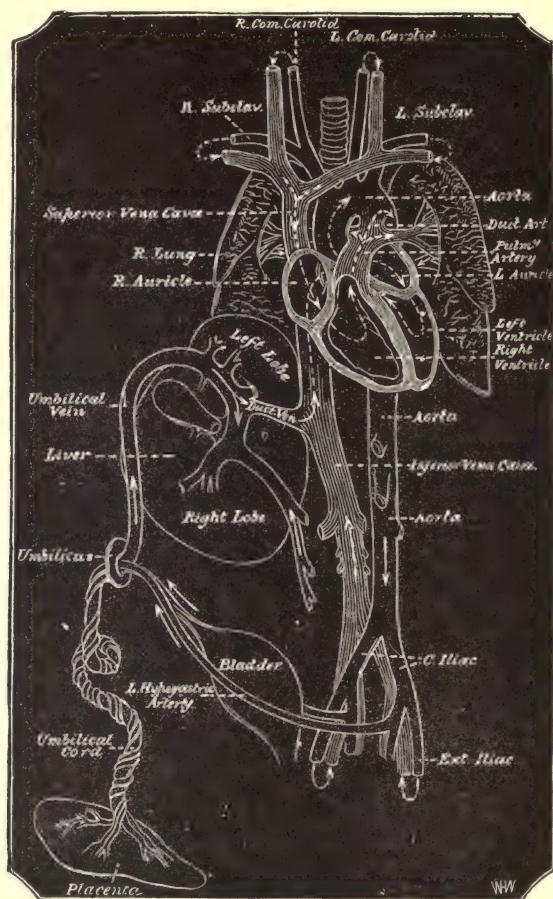 R. Com. Carotid
L. Com. Carotid
R. Subclav.
L. Subclav.
Superior Vena Cava
Aorta
Duct. Art
Pulmy
Artery
R. Lung
R. Auricle
L. Auricle
Left
Ventricle
Right
Ventricle
Left Lobe
Duct. Ven
Umbilical
Vein
Aorta
Liver
Inferior Vena Cava.
Right Lobe
Aorta
Umbilicus
Bladder
C. Iliac
L. Hypogastric
Artery
Umbilical
Cord
Ext. Iliac
Placenta
WHW